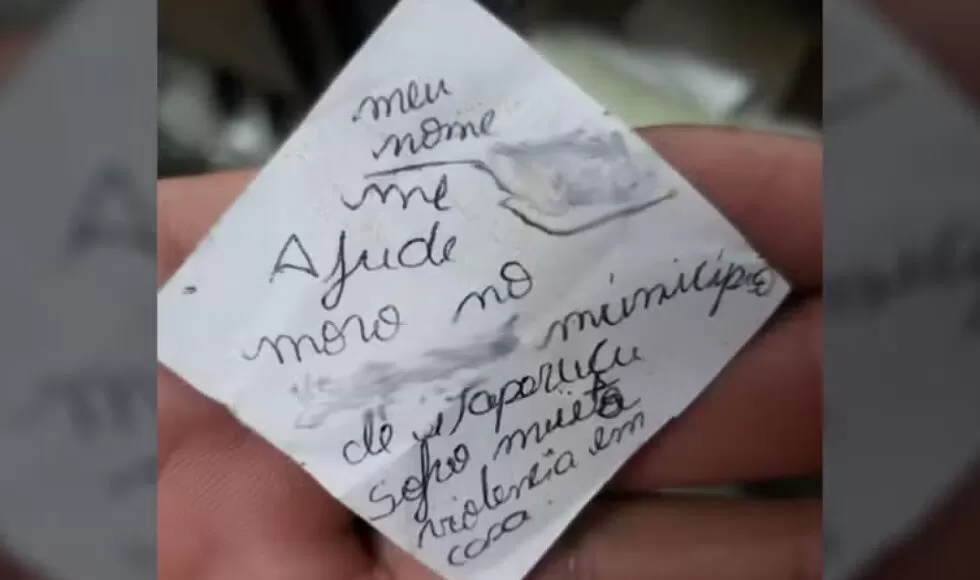 meu
nome
me
Ajude
moro no
município
de itaparuçu
Sofro muita
violencia em
casa.